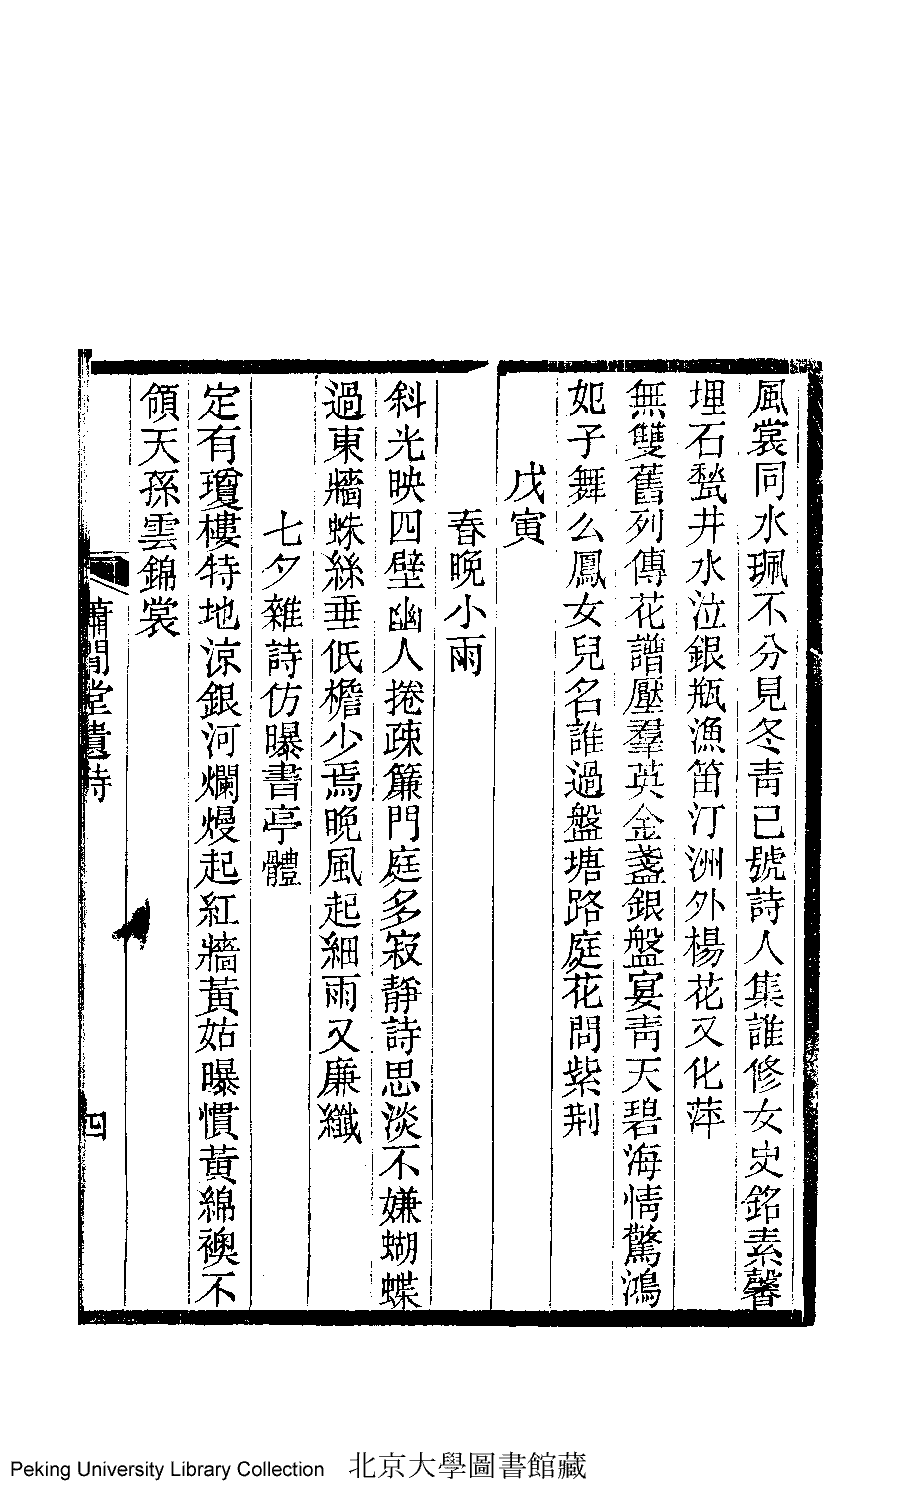 風裳同水珮不分見冬青已號詩人集誰修女史銘素馨
埋石甃井水泣銀瓶漁笛汀洲外楊花又化萍
無雙舊列傳花譜壓羣英金盞銀盤宴青天碧海情驚鴻
妃子舞么鳳女兒名誰過盤塘路庭花問紫荆
戊寅
春晚小雨
斜光映四壁幽人捲疎簾門庭多寂靜詩思淡不嫌蝴蝶
過東牆蛛絲垂低檐少焉晚風起細雨又廉纖
七夕雜詩仿曝書亭體
定有瓊樓特地涼銀河爛熳起紅牆黃姑曝慣黃綿襖不
領天孫雲錦裳
蕭閒堂遺詩
四
Peking University Library Collection 北京大學圖書館藏